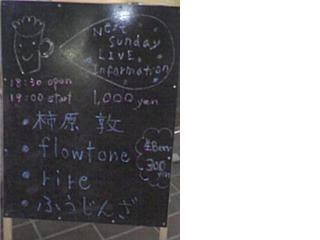 Next
Sunday
LIVE
Information
18:30 open
19:00 start 1,000 yen
・柿原 敦
・flowtone
・rire
・ふうじんざ
生Beer
300
yen